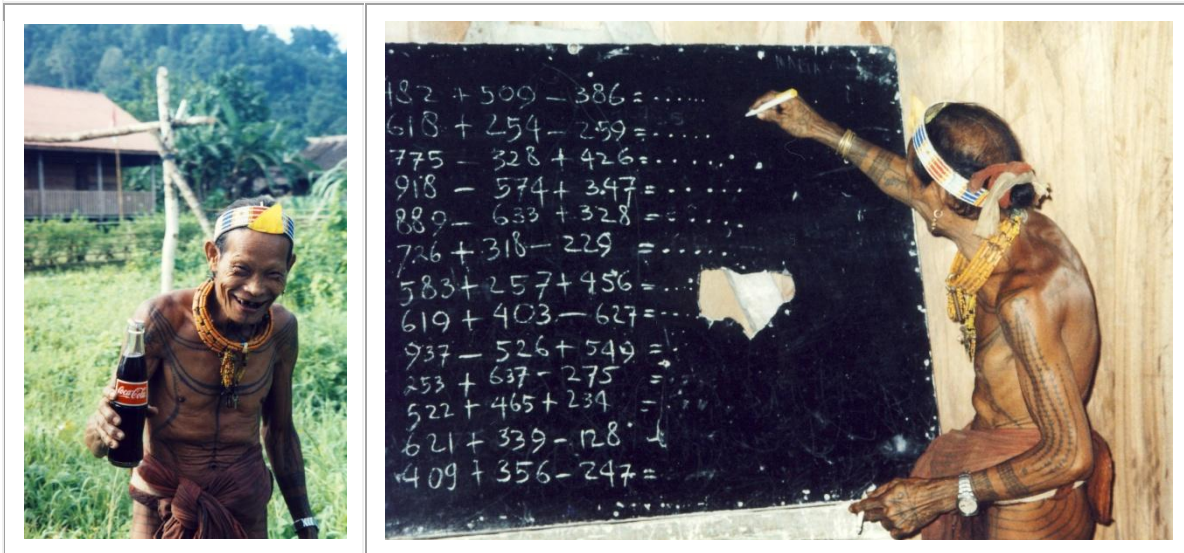 Coca-Cola
482 + 509 - 386 = ......
618 + 254 - 259 = ......
775 - 328 + 426 = ......
918 - 574 + 347 = ......
889 - 633 + 328 = ......
726 + 318 - 229 = ......
583 + 257 + 456 = ....
619 + 403 - 627 = ....
937 - 526 + 549 = .
253 + 637 - 275 =
522 + 465 + 234 =
621 + 339 - 128
409 + 356 - 247 =